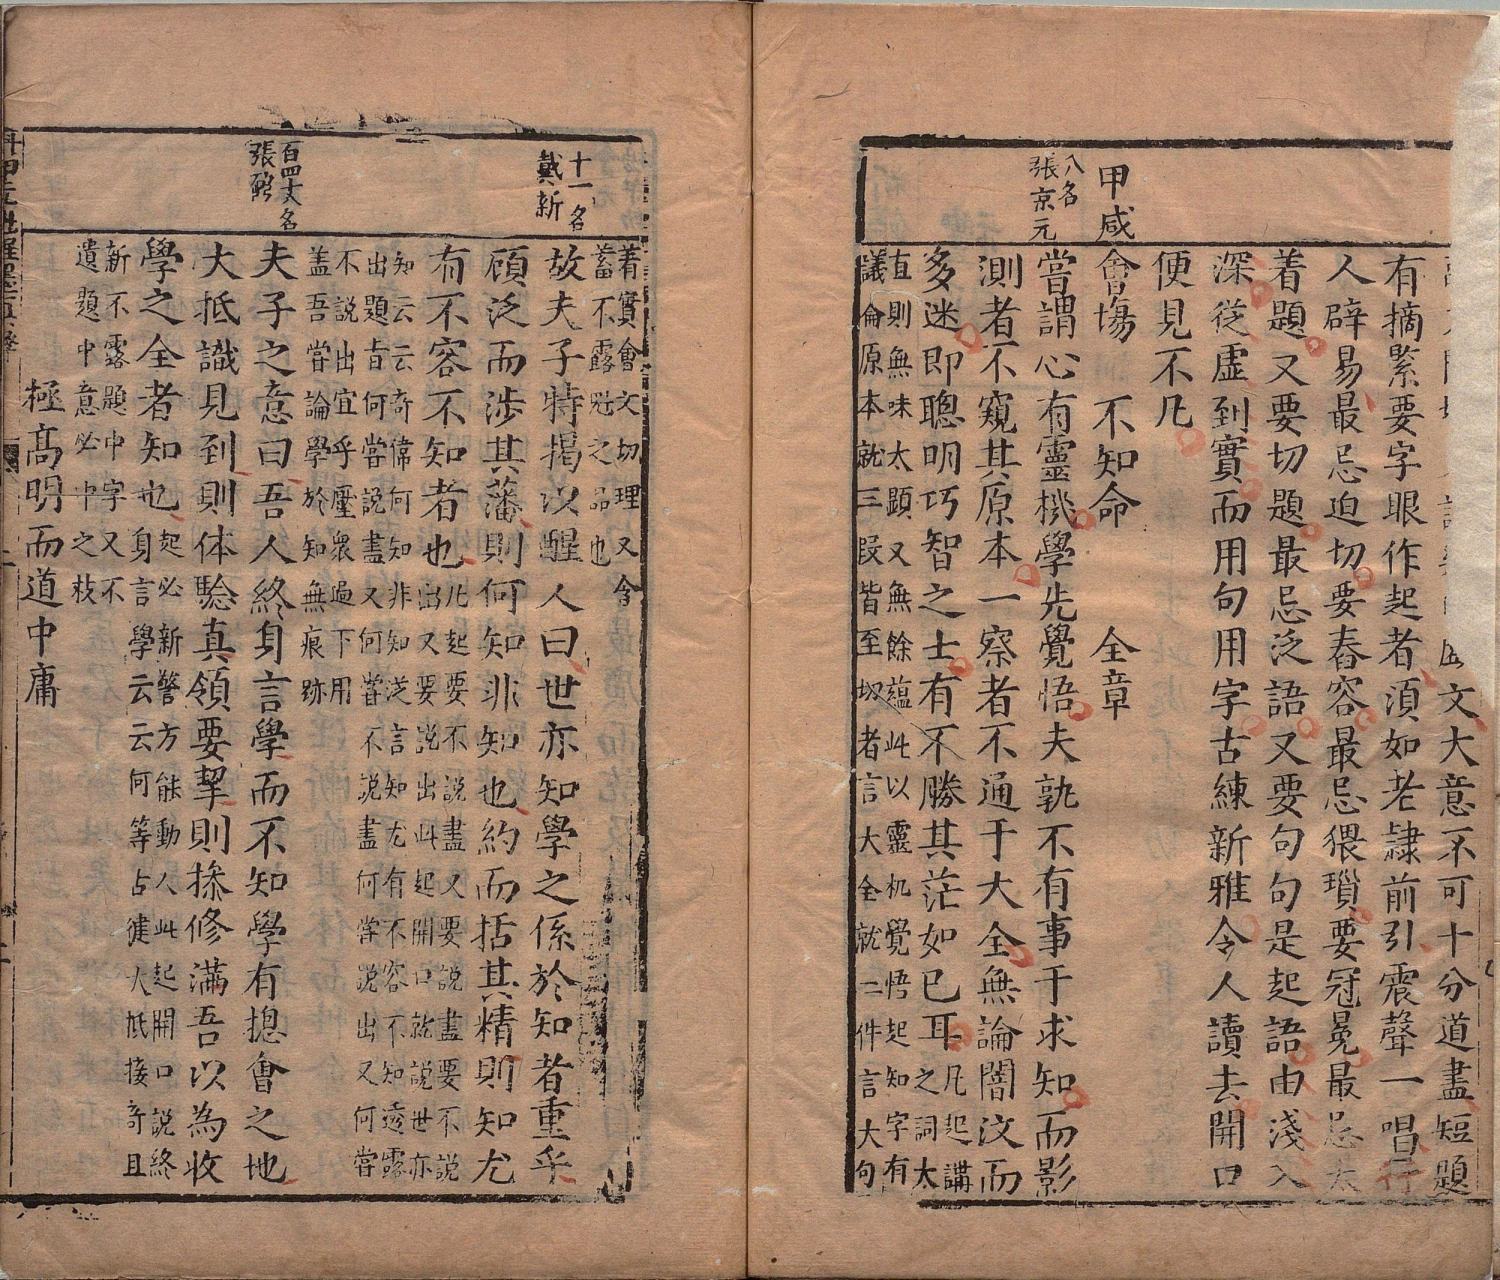 文大意不可十分道盡短題
有摘緊要字眼作起者須如老隷前引震聲一唱行
人辟易最忌迫切要舂容最忌猥瑣要冠冕最忌太
着題又要切題最忌泛語又要句句是起語由淺入
深從虛到實而用句用字古練新雅令人讀去開口
便見不凡
甲戍
會塲　不知命　全章
八名
張京元
嘗謂心有靈機學先覺悟夫孰不有事于求知而影
測者不窺其原本一察者不通于大全無論闇汶而
多迷即聰明巧智之士有不勝其茫如已耳
凡起講
之詞太
直則無味太顕又無餘蘊此以靈机覺悟起知字有
議侖原本就三叚皆至切者言大全就二件言大句
着實會文切理又含
蓄不露魁之品也
十一名
戴新
故夫子特揭以醒人曰世亦知學之係於知者重乎
顧泛而涉其藩則何知非知也約而括其精則知尤
有不容不知者也
凡起要不説盡又要説盡要不説
出又要説出此起開口就説世亦
知云云奇偉何知非知泛言知尤有不容不知透露
出題㫖何嘗説盡又何嘗不説盡何嘗説出又何嘗
不説出宜乎壓衆過下用
盖吾嘗論學於知無痕跡
百四大名
張
夫子之意曰吾人終身言學而不知學有摠會之地
大抵識見到則体驗真領要挈則操修滿吾以為收
學之全者知也
起必新警方能動人此起開口説終
身言學云云何等占徤大抵接奇且
新不露題中字又不
遺題中意必中之枝
極高明而道中庸